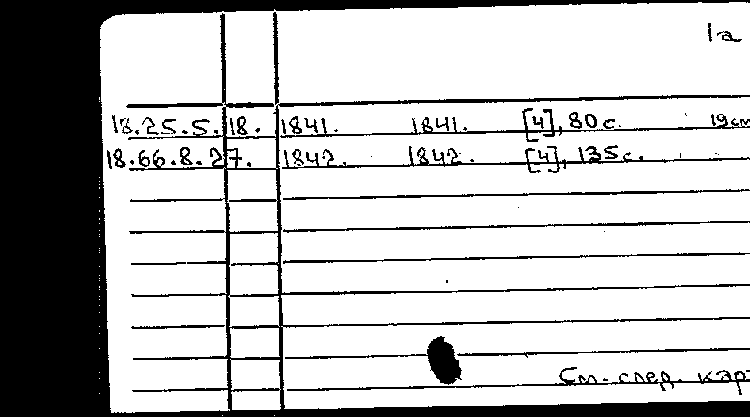 1a
18.25.5.18. 1841. 1841. [4], 80 с. 19 см
18.66.8.27. 1842. 1842. [4], 135 с.
См. след. кар